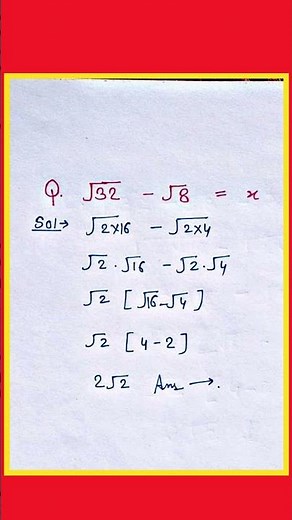 Q. √32 - √8 = x
Sol→ √2×16 - √2×4
√2 · √16 - √2 · √4
√2 [ √16 - √4 ]
√2 [ 4 - 2 ]
2√2 Ans →.